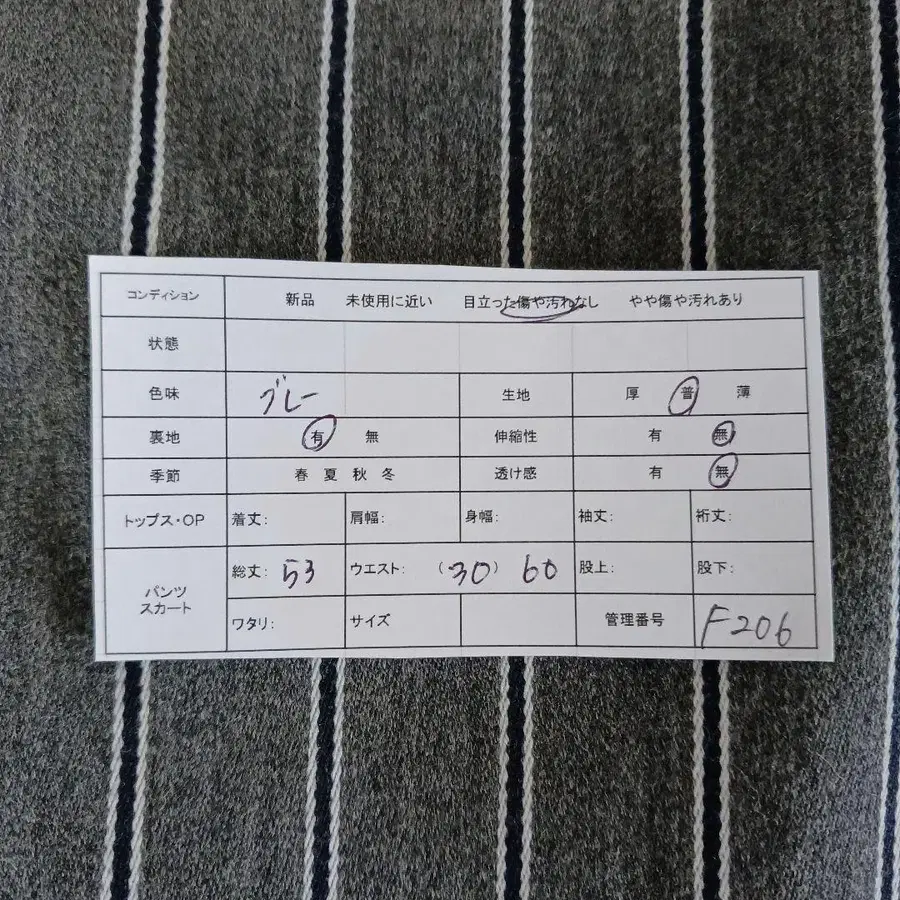 コンディション 新品 未使用に近い 目立った傷や汚れなし やや傷や汚れあり
状態
色味 グレー 生地 厚 普 薄
裏地 有 無 伸縮性 有 無
季節 春 夏 秋 冬 透け感 有 無
トップス・OP 着丈: 肩幅: 身幅: 袖丈: 裄丈:
パンツ スカート 総丈: 53 ウエスト: (30) 60 股上: 股下:
ワタリ: サイズ 管理番号 F206